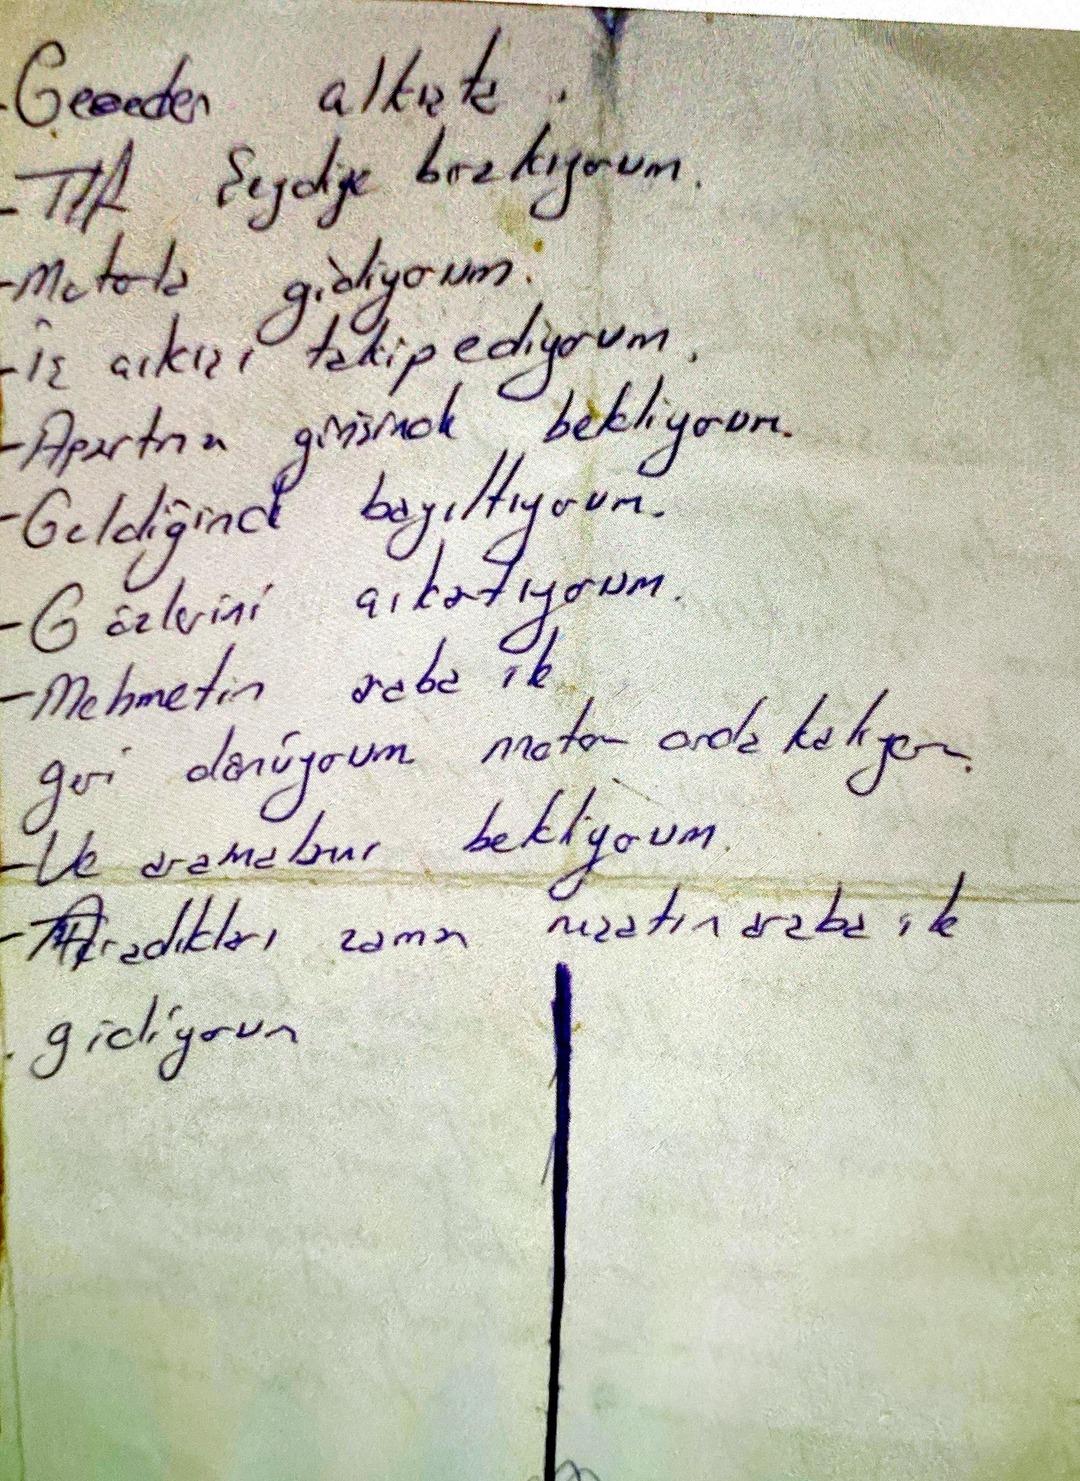 -Geceden
-TIR Seydiye bırakıyorum.
-Motorla gidiyorum.
-İş çıkışı takip ediyorum.
-Apartman girişinde bekliyorum.
-Geldiğinde bayıltıyorum.
-Gözlerini çıkartıyorum.
-Mehmetin araba ile
geri dönüyorum motor orda kalıyor.
-Ve aramaları bekliyorum.
-Aradıkları zaman nızatın araba ile
gidiyorum